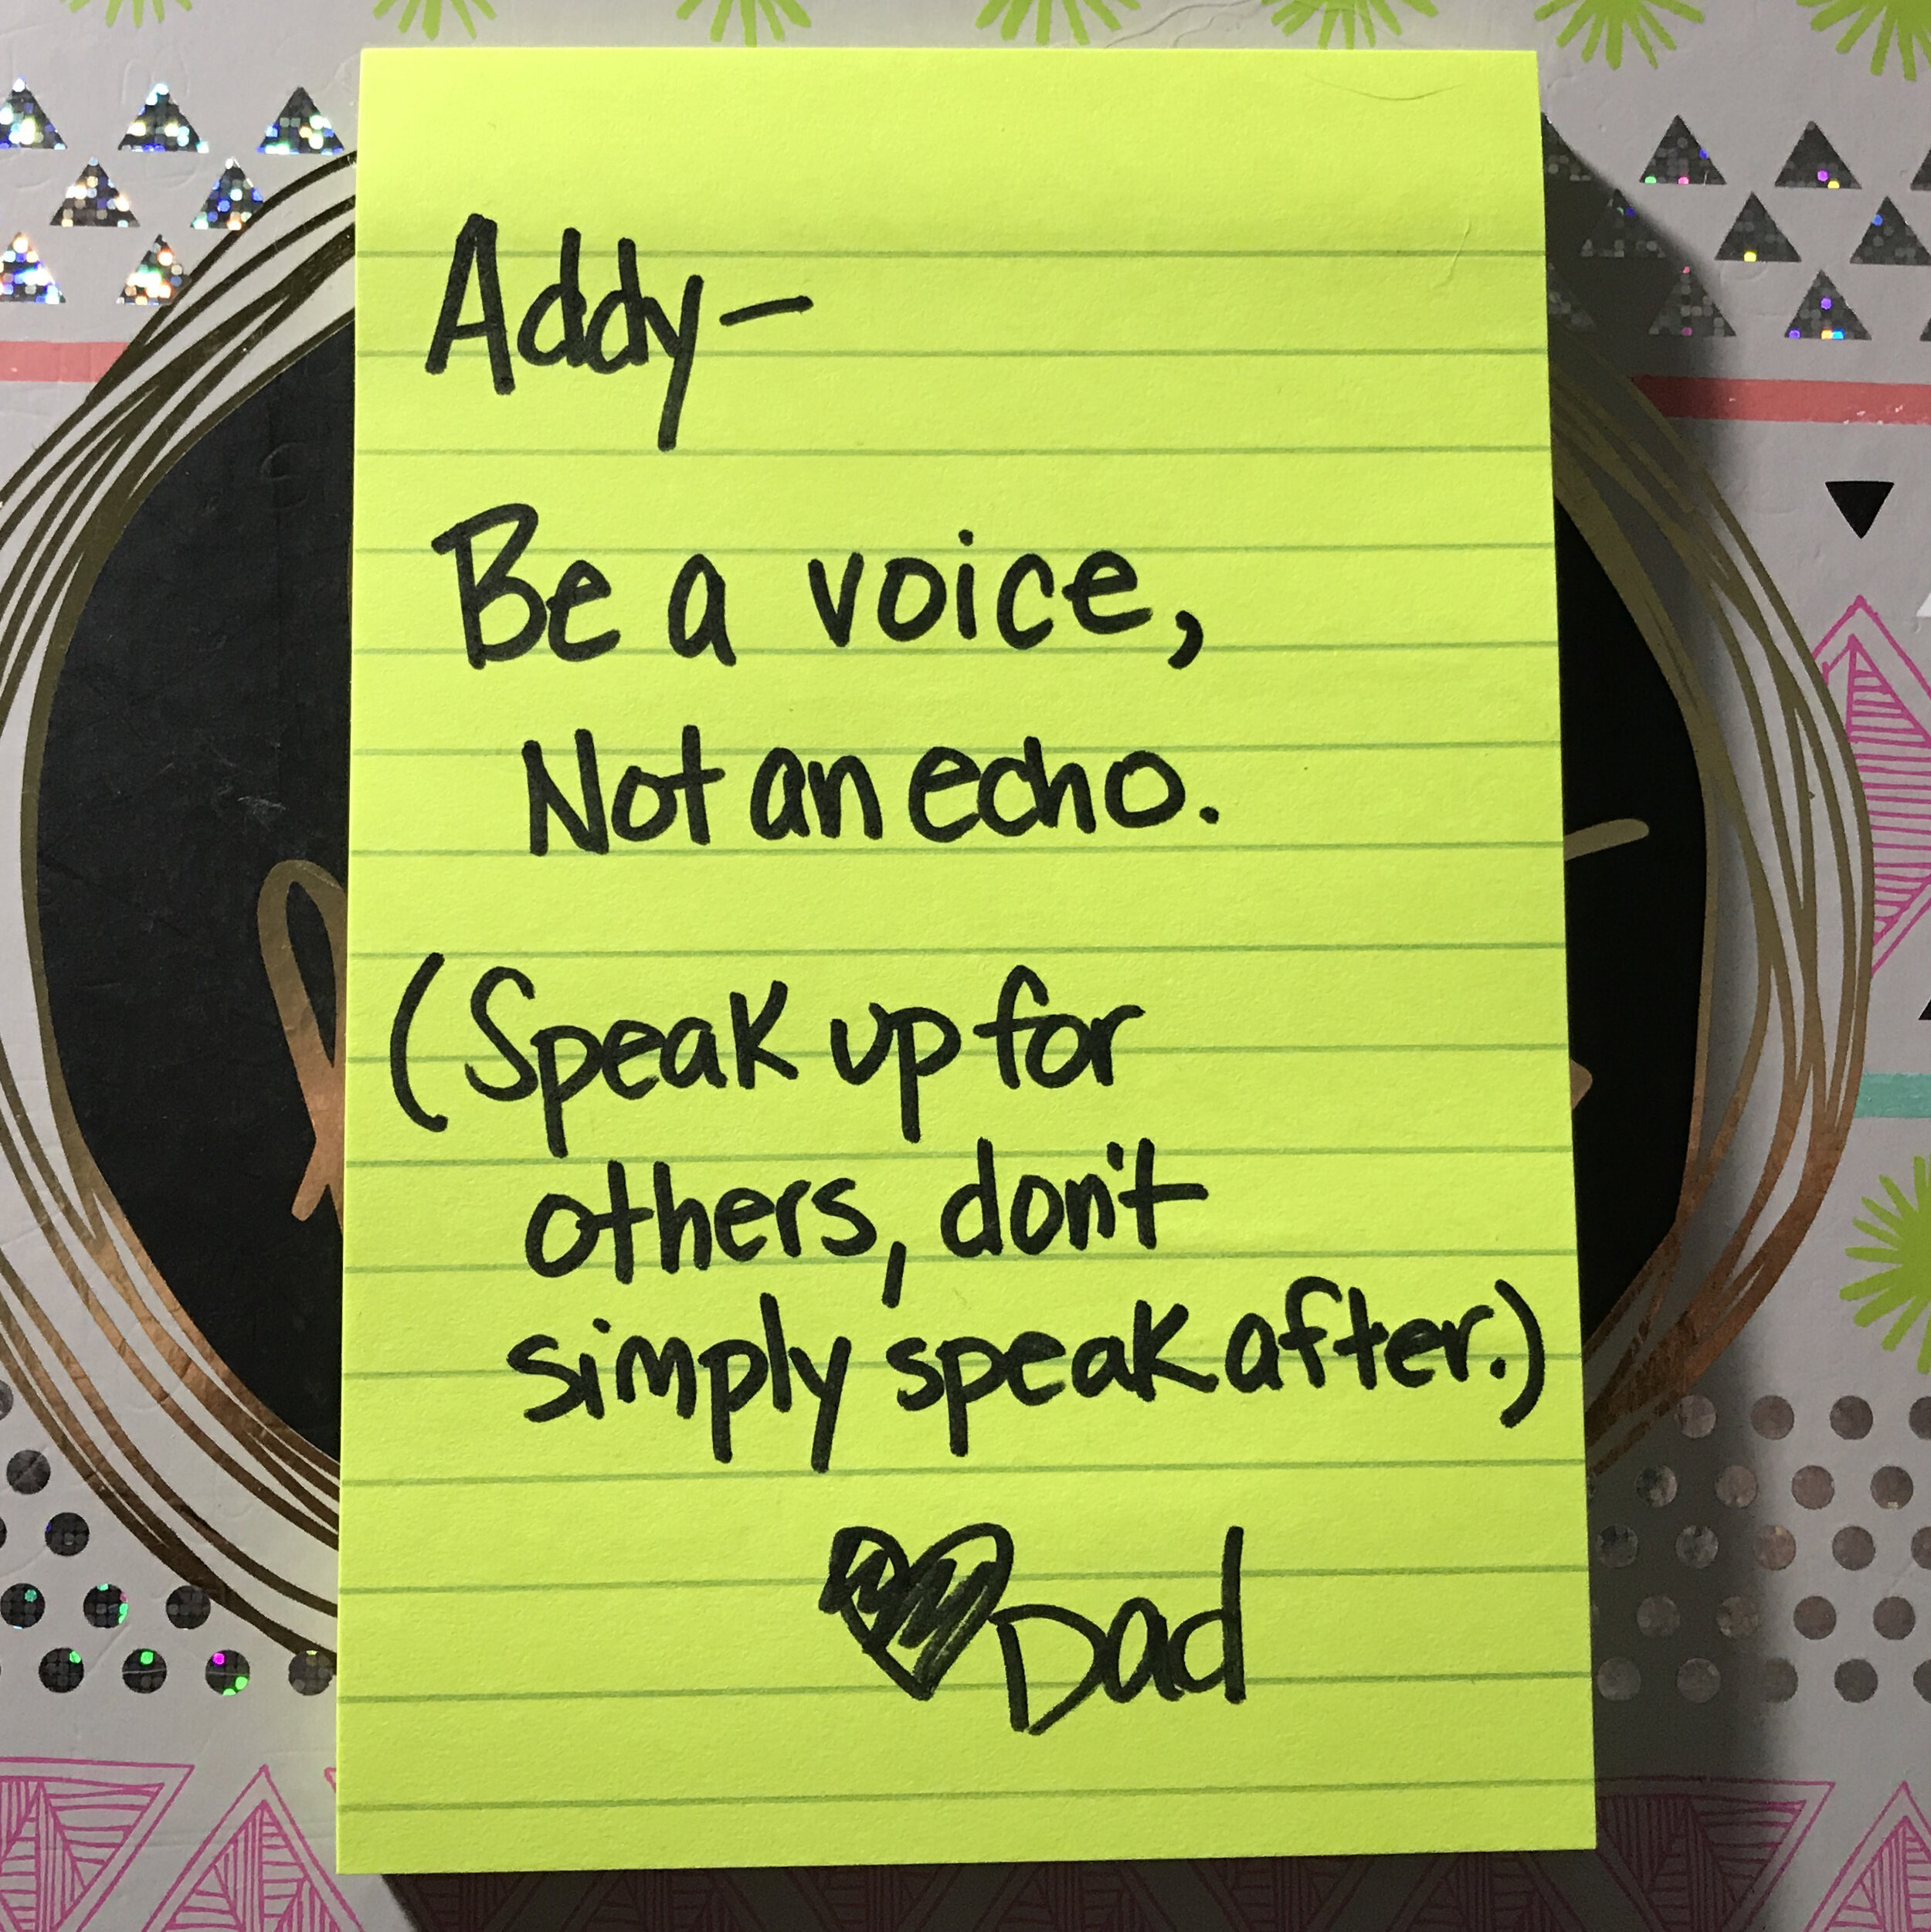 Addy-
Be a voice,
Not an echo.
(Speak up for
others, don't
simply speak after.)
Dad